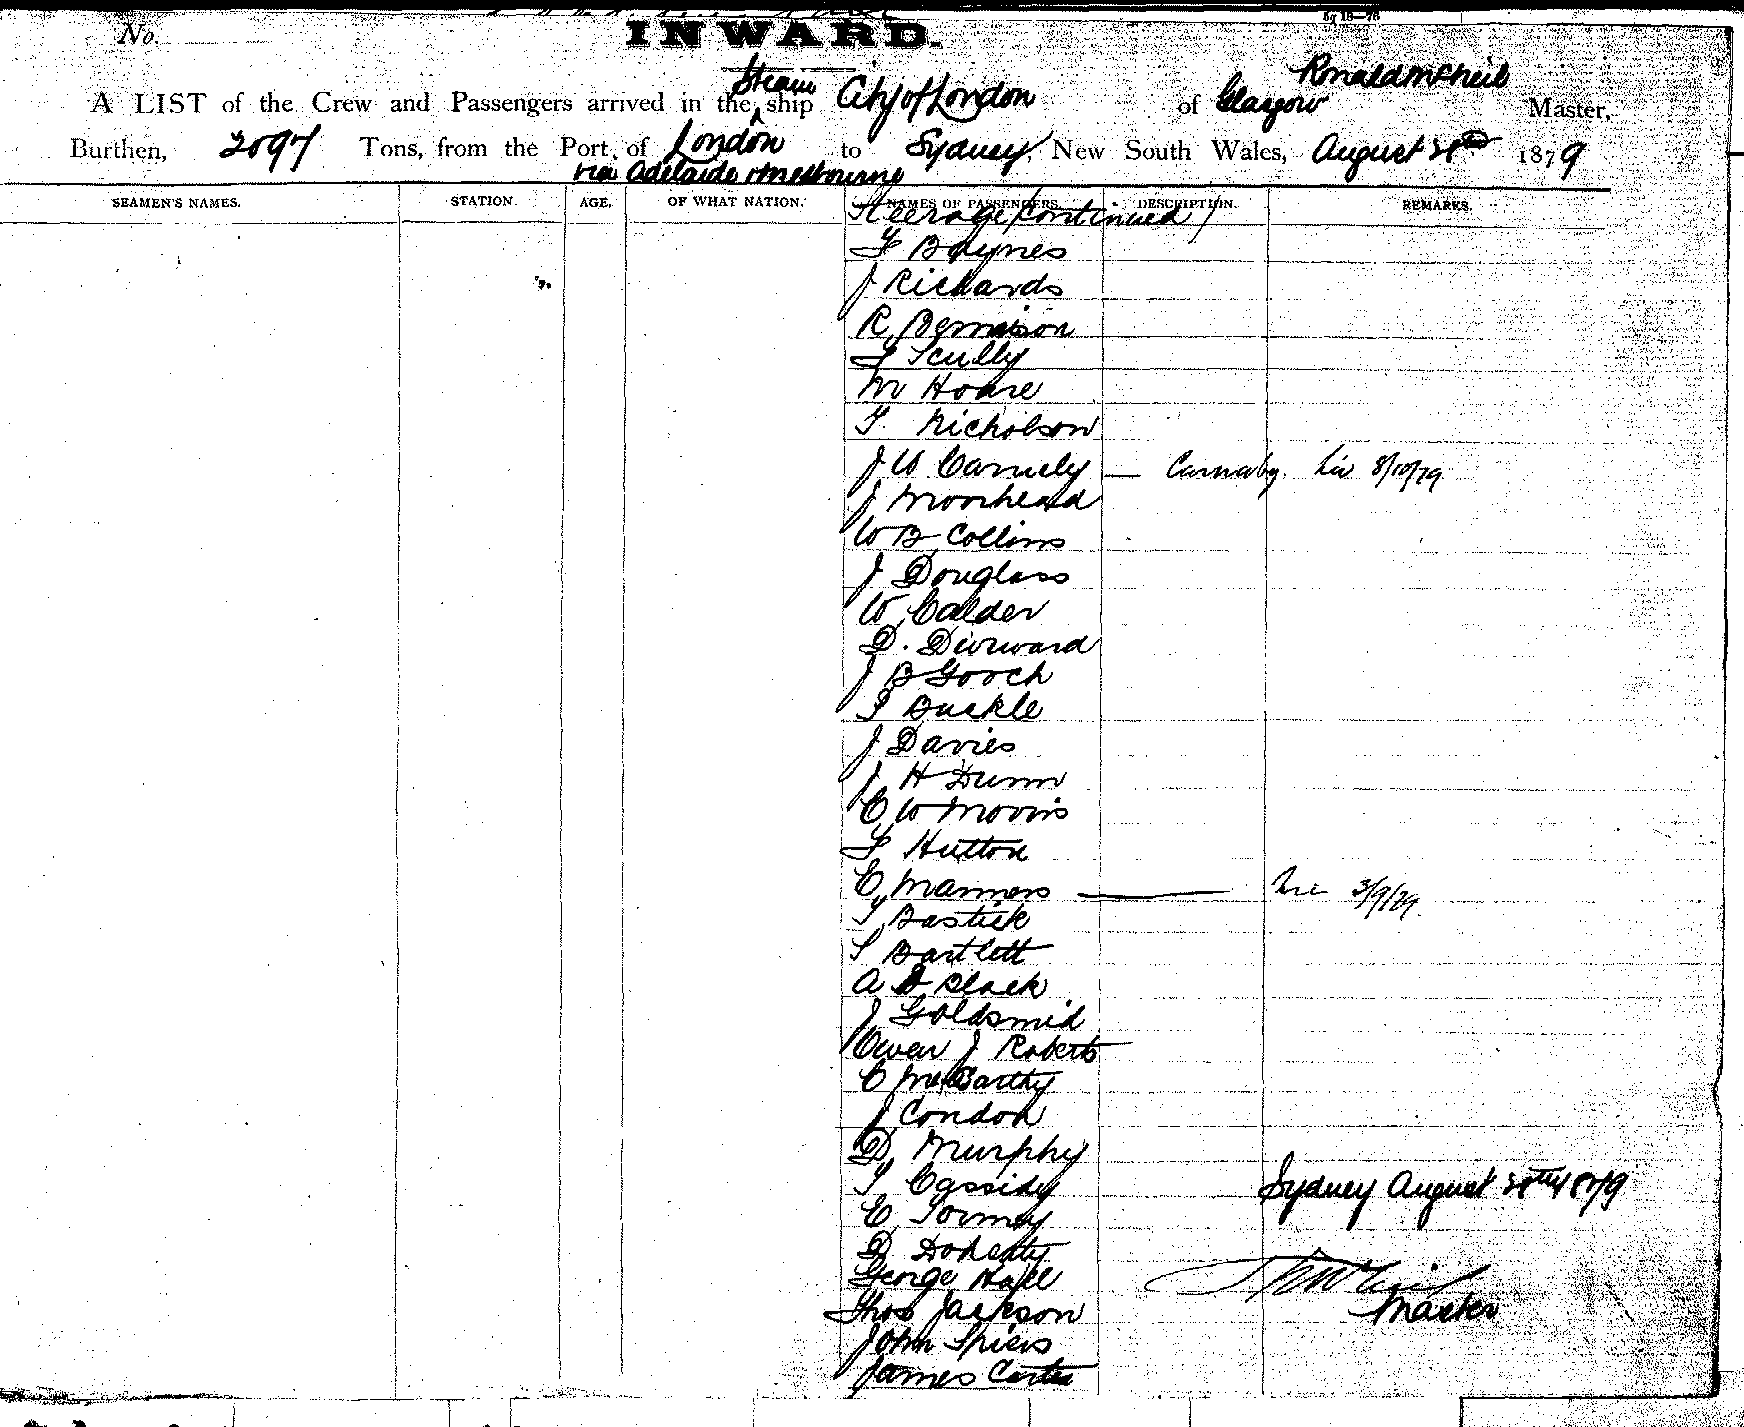 No.
INWARD.
Steam Ronald McNeil
A LIST of the Crew and Passengers arrived in the ship City of London of Glasgow Master,
Burthen, 2097 Tons, from the Port of London to Sydney, New South Wales, August 20th 1879
via Adelaide & Melbourne
SEAMEN'S NAMES. STATION. AGE. OF WHAT NATION. NAMES OF PASSENGERS. DESCRIPTION. REMARKS.
Steerage (continued)
F Baynes
J Richards
R Bennison
F Scully
M Hoare
F. Nicholson
J W Carnely — Carnaby. Liv 8/10/79
J Moorhead
W B Collins
J Douglass
W Calder
D. Durward
J B Gooch
T Buckle
J Davies
J H Dunn
C W Morris
F Hutton
C Manners — 3/9/79.
T Bastick
S Bartlett
A B Black
J Goldsmid
Owen J Roberts
C McCarthy
J Condon
D Murphy
T Cassidy Sydney August 20th 1879
E Tormey
D Doherty
George Hall McNeil
Thos Jackson Master
John Spiers
James Carter